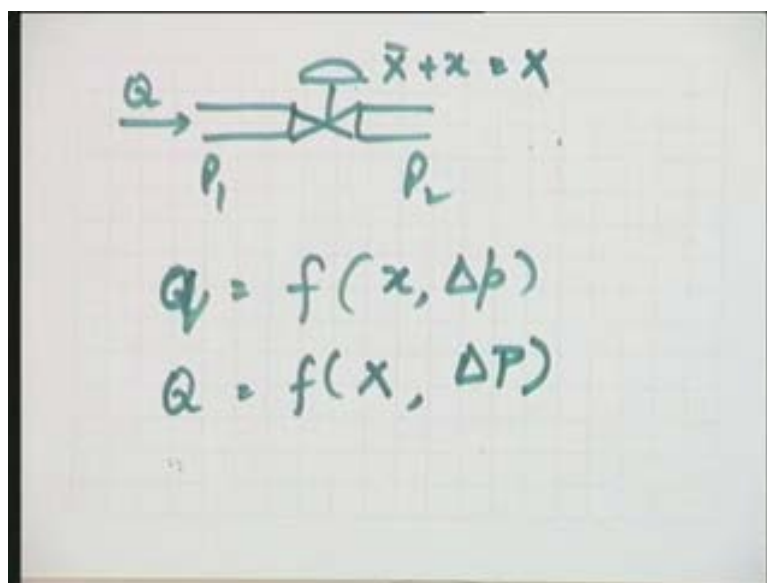 X̄ + x = X
Q
P₁ P₂
q = f(x, Δp)
Q = f(X, ΔP)